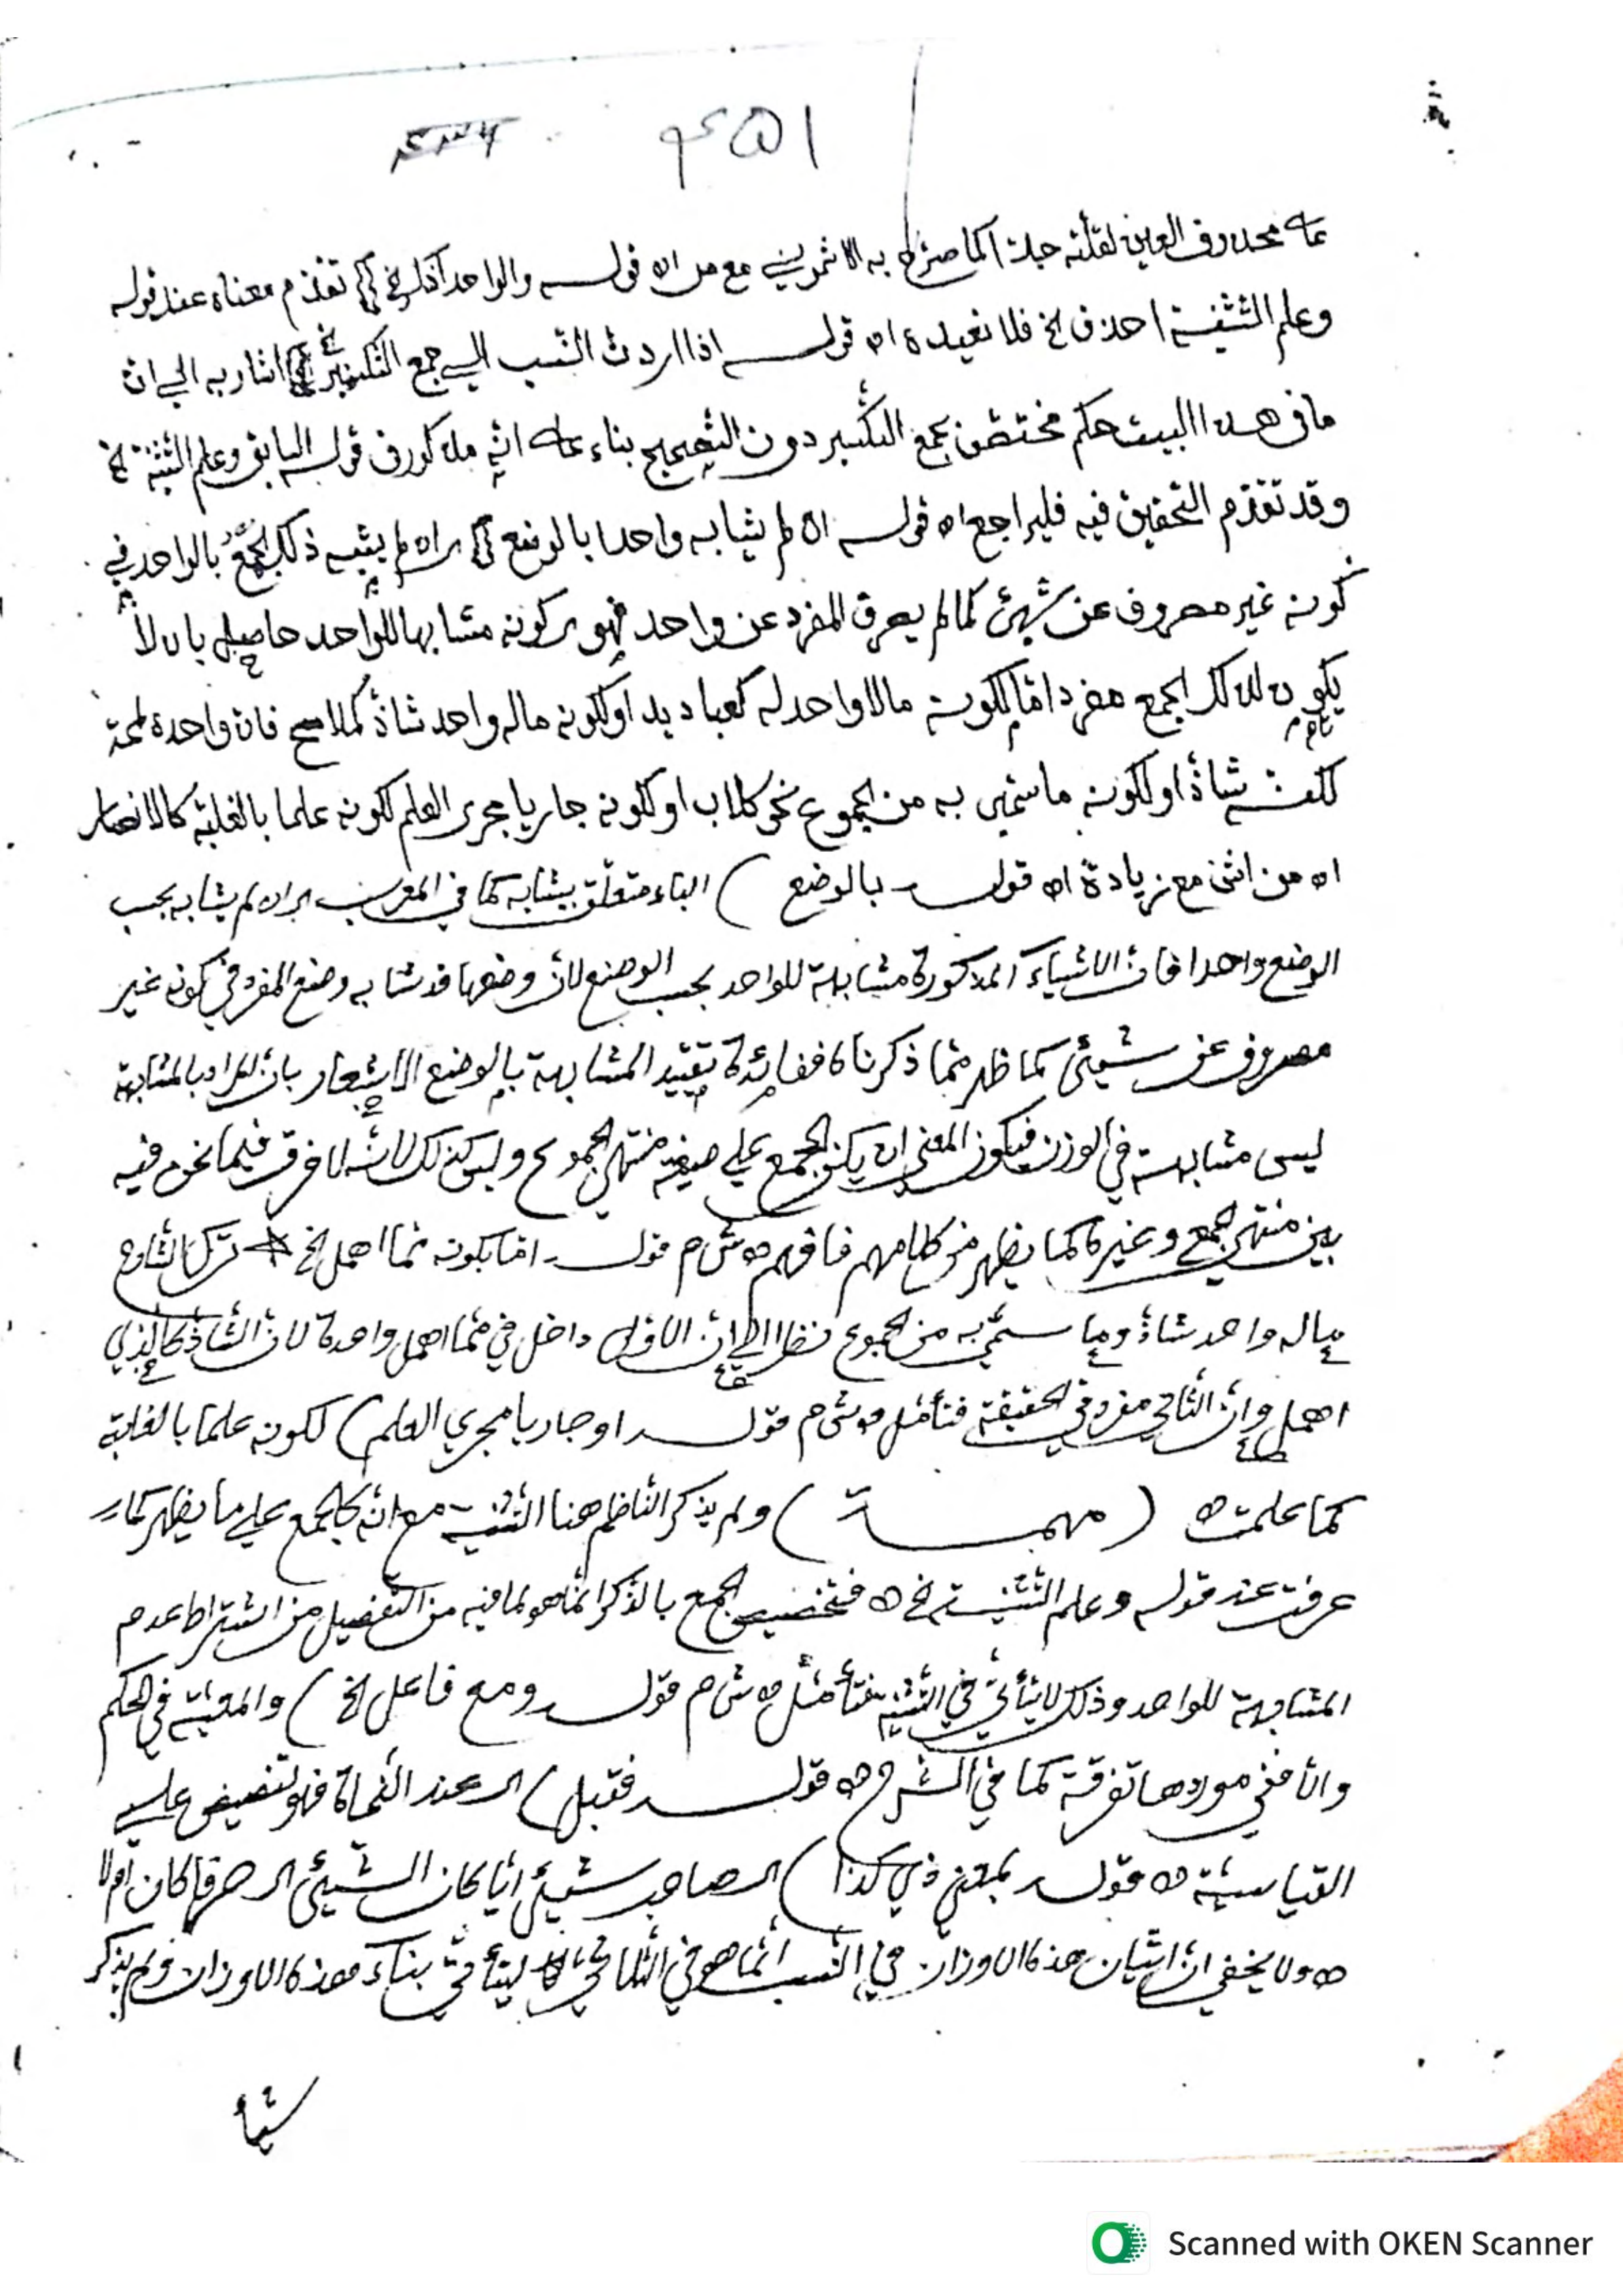 ٤٥١ ٤٣٦
على محذوف العين لقلته جدا كما صرح به الاشموني مع من اه قوله والواحد اذكر الخ تقدم معناه عند قوله
وعلم التثنية احذف الخ فلا نعيده اه قوله اذا اردت النسب الى جمع التكسير اشار به الى ان
ما فى هذا البيت حكم مختص بجمع التكسير دون التصحيح بناء على انه مذكور فى قوله السابق وعلم التثنية الخ
وقد تقدم التحقيق فيه فليراجع اه قوله ان لم يشابه واحدا بالوضع اى ان لم يشبه ذلك الجمع بالواحد في
كونه غير مصروف عن شيئ كما لم يصرف المفرد عن واحد فهو كونه مشابها للواحد حاصل بان لا
يكون لذلك الجمع مفرد امّا لكونه مالا واحد له كعباديد او لكونه ماله واحد شاذ كملامح فان واحده لمحة
لكنه شاذ او لكونه ما سُمّي به من الجموع نحو كلاب او لكونه جاريا مجرى العلم لكونه علما بالغلبة كالانصار
اه من اشنى مع زيادة اه قوله بالوضع ) الباء متعلق بيشابه كما في المعرب اى ان لم يشابه بحسب
الوضع واحدا فان الاشياء المذكورة مشابهة للواحد بحسب الوضع لان وضعها قد شابه وضع المفرد في كونه غير
مصروف عن شيئى كما ظهر مما ذكرناه ففائدة تقييد المشابهة بالوضع الاشعار بان المراد بالمشابهة
ليس مشابهة في الوزن فيكون المعنى ان يكن الجمع على صيغة منتهى الجموع وليس كذلك لانه لا فرق فيما نحن فيه
بين منتهى الجمع وغيره كما يظهر من كلامهم فافهم اه ش م قوله امّا بكونه مما اهمل الخ ترك الشارح
ما له واحد شاذ وما سمّي به من الجموع نظرا الى ان الاول داخل في مما اهمل واحده لان الشاذ كالذي
اهمل وان الثاني مفرد في الحقيقة فتأمل اه ش م قوله او جاريا مجري العلم ) لكونه علما بالغلبة
كما علمت اه ( مهمـــة ) ولم يذكر الناظم هنا التثنية مع انه كالجمع على ما يظهر كما
عرفت عند قوله وعلم التثنية الخ اه فتخصيص الجمع بالذكر انما هو لما فيه من التفصيل من اشتراط عدم
المشابهة للواحد وذلك لا يتأتى في التثنية فتأمل اه ش م قوله ومع فاعل الخ ) والمعية في الحكم
والا ففي موردها تفرقة كما في الشرح اه قوله فقبل ) اى عند النحاة فهو تنصيص على
القياسية اه قوله بمعنى ذي كذا ) اى صاحب شيئ ايّا كان الشيئ اى حرفا كان ام لا
اه ولا يخفى ان اتيان هذه الاوزان في النسب انما هو في الثلاثي ليتأتى بناء هذه الاوزان ولم يذكر
شيأ
Scanned with OKEN Scanner